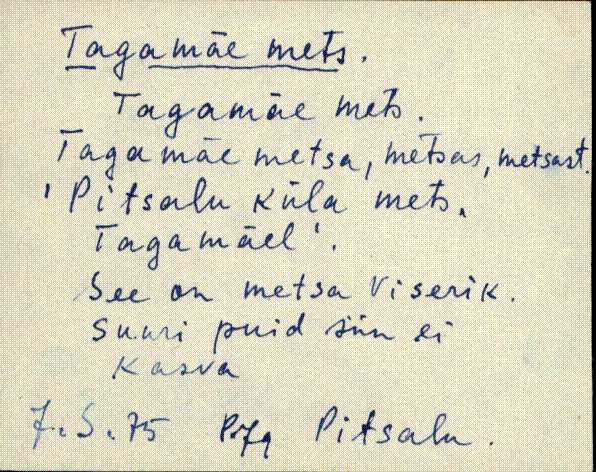 Tagamäe mets.
Tagamäe mets.
Tagamäe metsa, metsas, metsast.
'Pitsalu küla mets,
Tagamäel'.
See on metsa viserik.
Suuri puid siin ei
kasva
7.S.75 Pitsalu.